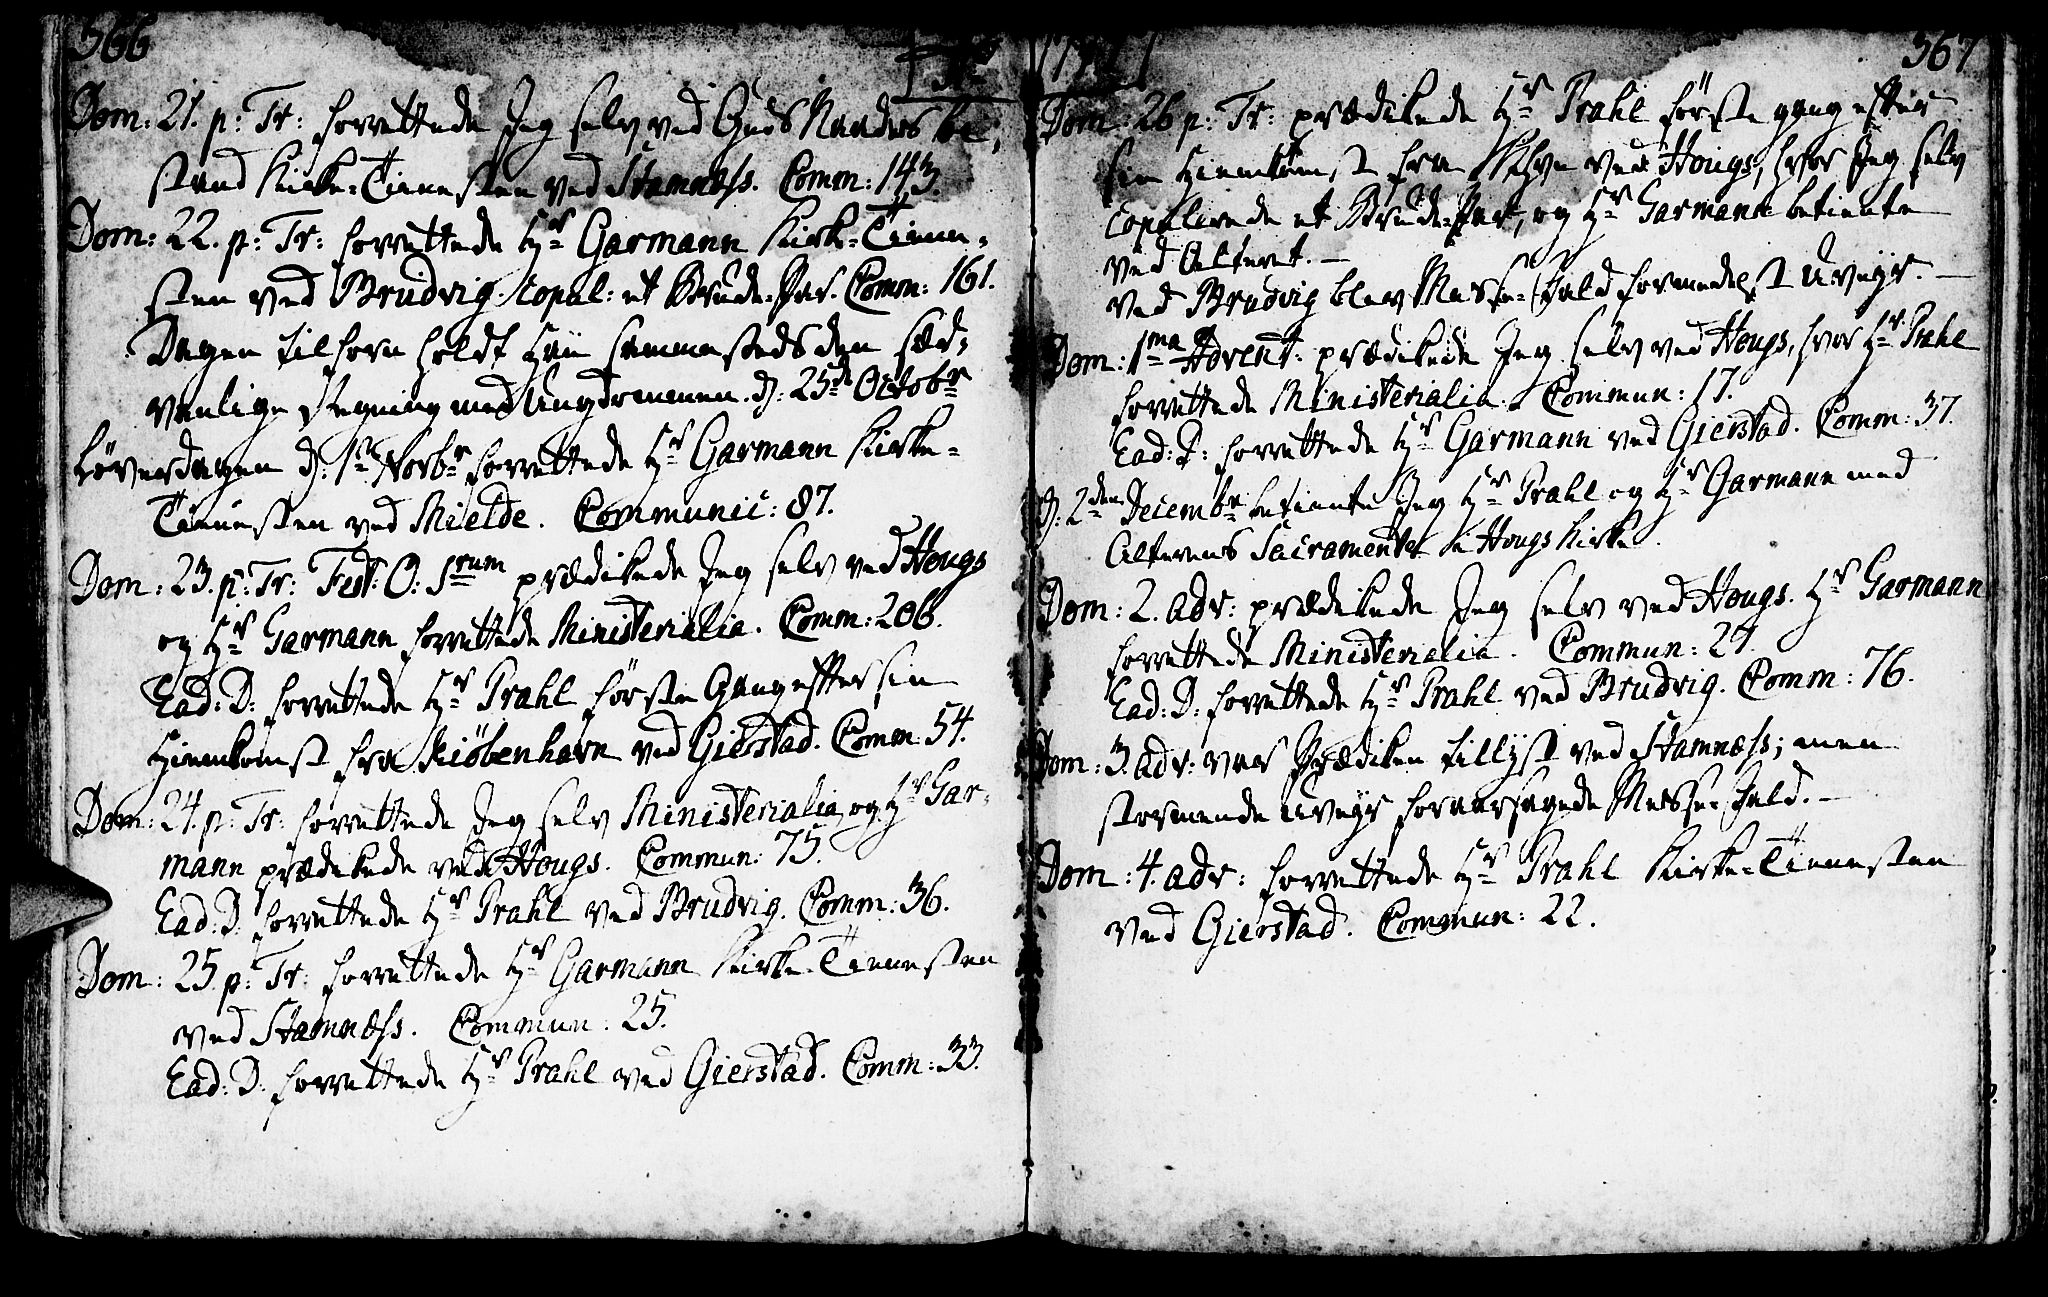 366
Dom: 21. p: Tr: forrettede Jeg selv ved Guds Naades bi-
stand Kirke-Tienesten ved Stamnæss. Comm: 143.
Dom: 22. p: Tr: forrettede Hr Garmann Kirke-Tiene-
sten ved Brudvig. Copul: et Brude-Par. Comm: 161.
Dagen tilforn holdt han sammesteds den sæd-
vanlige Regning med Ungdommen. d. 25de Octobr
Löverdagen d. 1ste Novbr forrettede Hr Garmann Kirke-
Tienesten ved Mielde. Communic: 87.
Dom: 23. p: Tr: Fest: O: Srum prædikede Jeg selv ved Hougs
og Hr Garmann forrettede Ministerialia. Comm: 206.
Ead: D: forrettede Hr Prahl förste Gang efter sin
Hiemkomst fra Kiöbenhavn ved Gierstad. Comm: 54.
Dom: 24. p: Tr: forrettede Jeg selv Ministerialia, og Hr Gar-
mann prædikede ved Hougs. Commun: 75.
Ead: D: forrettede Hr Prahl ved Brudvig. Comm: 36.
Dom: 25. p: Tr: forrettede Hr Garmann Kirke-Tienesten
ved Stamnæss. Commun: 25.
Ead: D: forrettede Hr Prahl ved Gierstad. Comm: 33.
367
Dom: 26 p: Tr: prædikede Hr Prahl förste gang efter
sin Hiemkomst fra ved Hougs, hvor Jeg selv
copulerede et Brude-Par, og Hr Garmann betiente
ved Alteret. –
ved Brudvig blev Messe-Fald formedelst Uveyr. –
Dom: 1ma Advent: prædikede Jeg selv ved Hougs, hvor Hr Prahl
forrettede Ministerialia. Commun: 17.
Ead: D: forrettede Hr Garmann ved Gierstad. Comm: 37.
d. 2den Decembr betiente Jeg Hr Prahl og Hr Garmann med
Alterens Sacramente i Hougs Kirke.
Dom: 2. adv: prædikede Jeg selv ved Hougs. Hr Garmann
forrettede Ministerialia. Commun: 21.
Ead: D: forrettede Hr Prahl ved Brudvig. Comm: 76.
Dom: 3. adv: var Prædiken tillyst ved Stamnæss; men
stormende Uveyr foraarsagede Messe-Fald. –
Dom: 4. adv: forrettede Hr Prahl Kirke-Tienesten
ved Gierstad. Commun: 22.